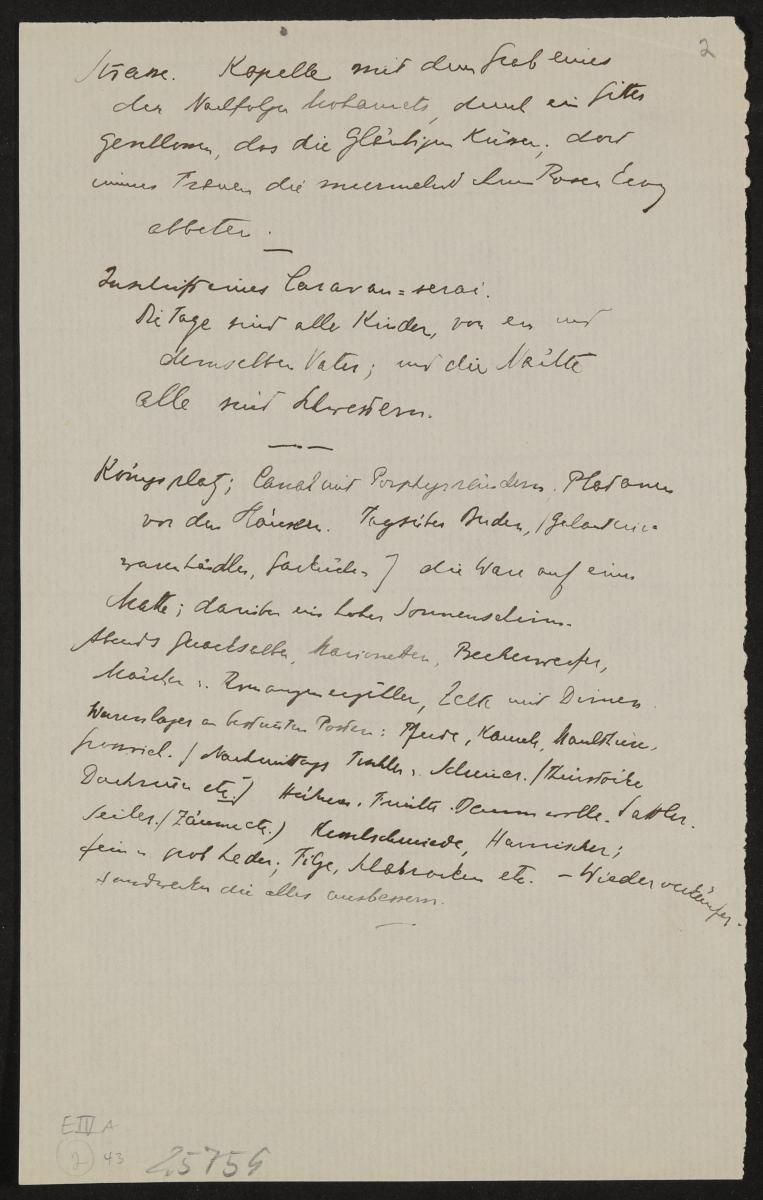 2
Strasse. Kapelle mit dem Grab eines
der Nachfolger Mohamets, durch ein Gitter
geschlossen, das die Gläubigen Küssen; dort
immer Frauen die murmelnd ihren Rosen
abbeten.
Inschrift eines Caravan=serai.
Die Tage sind alle Kinder, von ein und
demselben Vater; und die Nächte
alle sind Schwestern.
Königsplatz; Canal mit Porphyrrändern. Platanen
vor den Häusern. Tagsüber Buden, (Galanterie-
warenhändler, Garküchen) die Ware auf einer
Matte; darüber ein hoher Sonnenschirm.
Abends Quacksalber, Marionetten, Becherwerfer,
Märchen u. Romanzenerzähler, Zelte mit Dirnen
Warenlager an bestimten Posten: Pferde, Kameele, Maulthiere.
/ Nachmittags Tischler u. /Thürstöcke
Dachrinnen etc/ Hühner. Früchte. Baumwolle. Sattler.
Seiler. /Zäume etc./ Kesselschmiede, Harnischer;
fein u grob Leder; Filze, Schabracken etc. – Wiederverkäufer.
Handwerker die alles ausbessern.
E IV A
2 43 25759